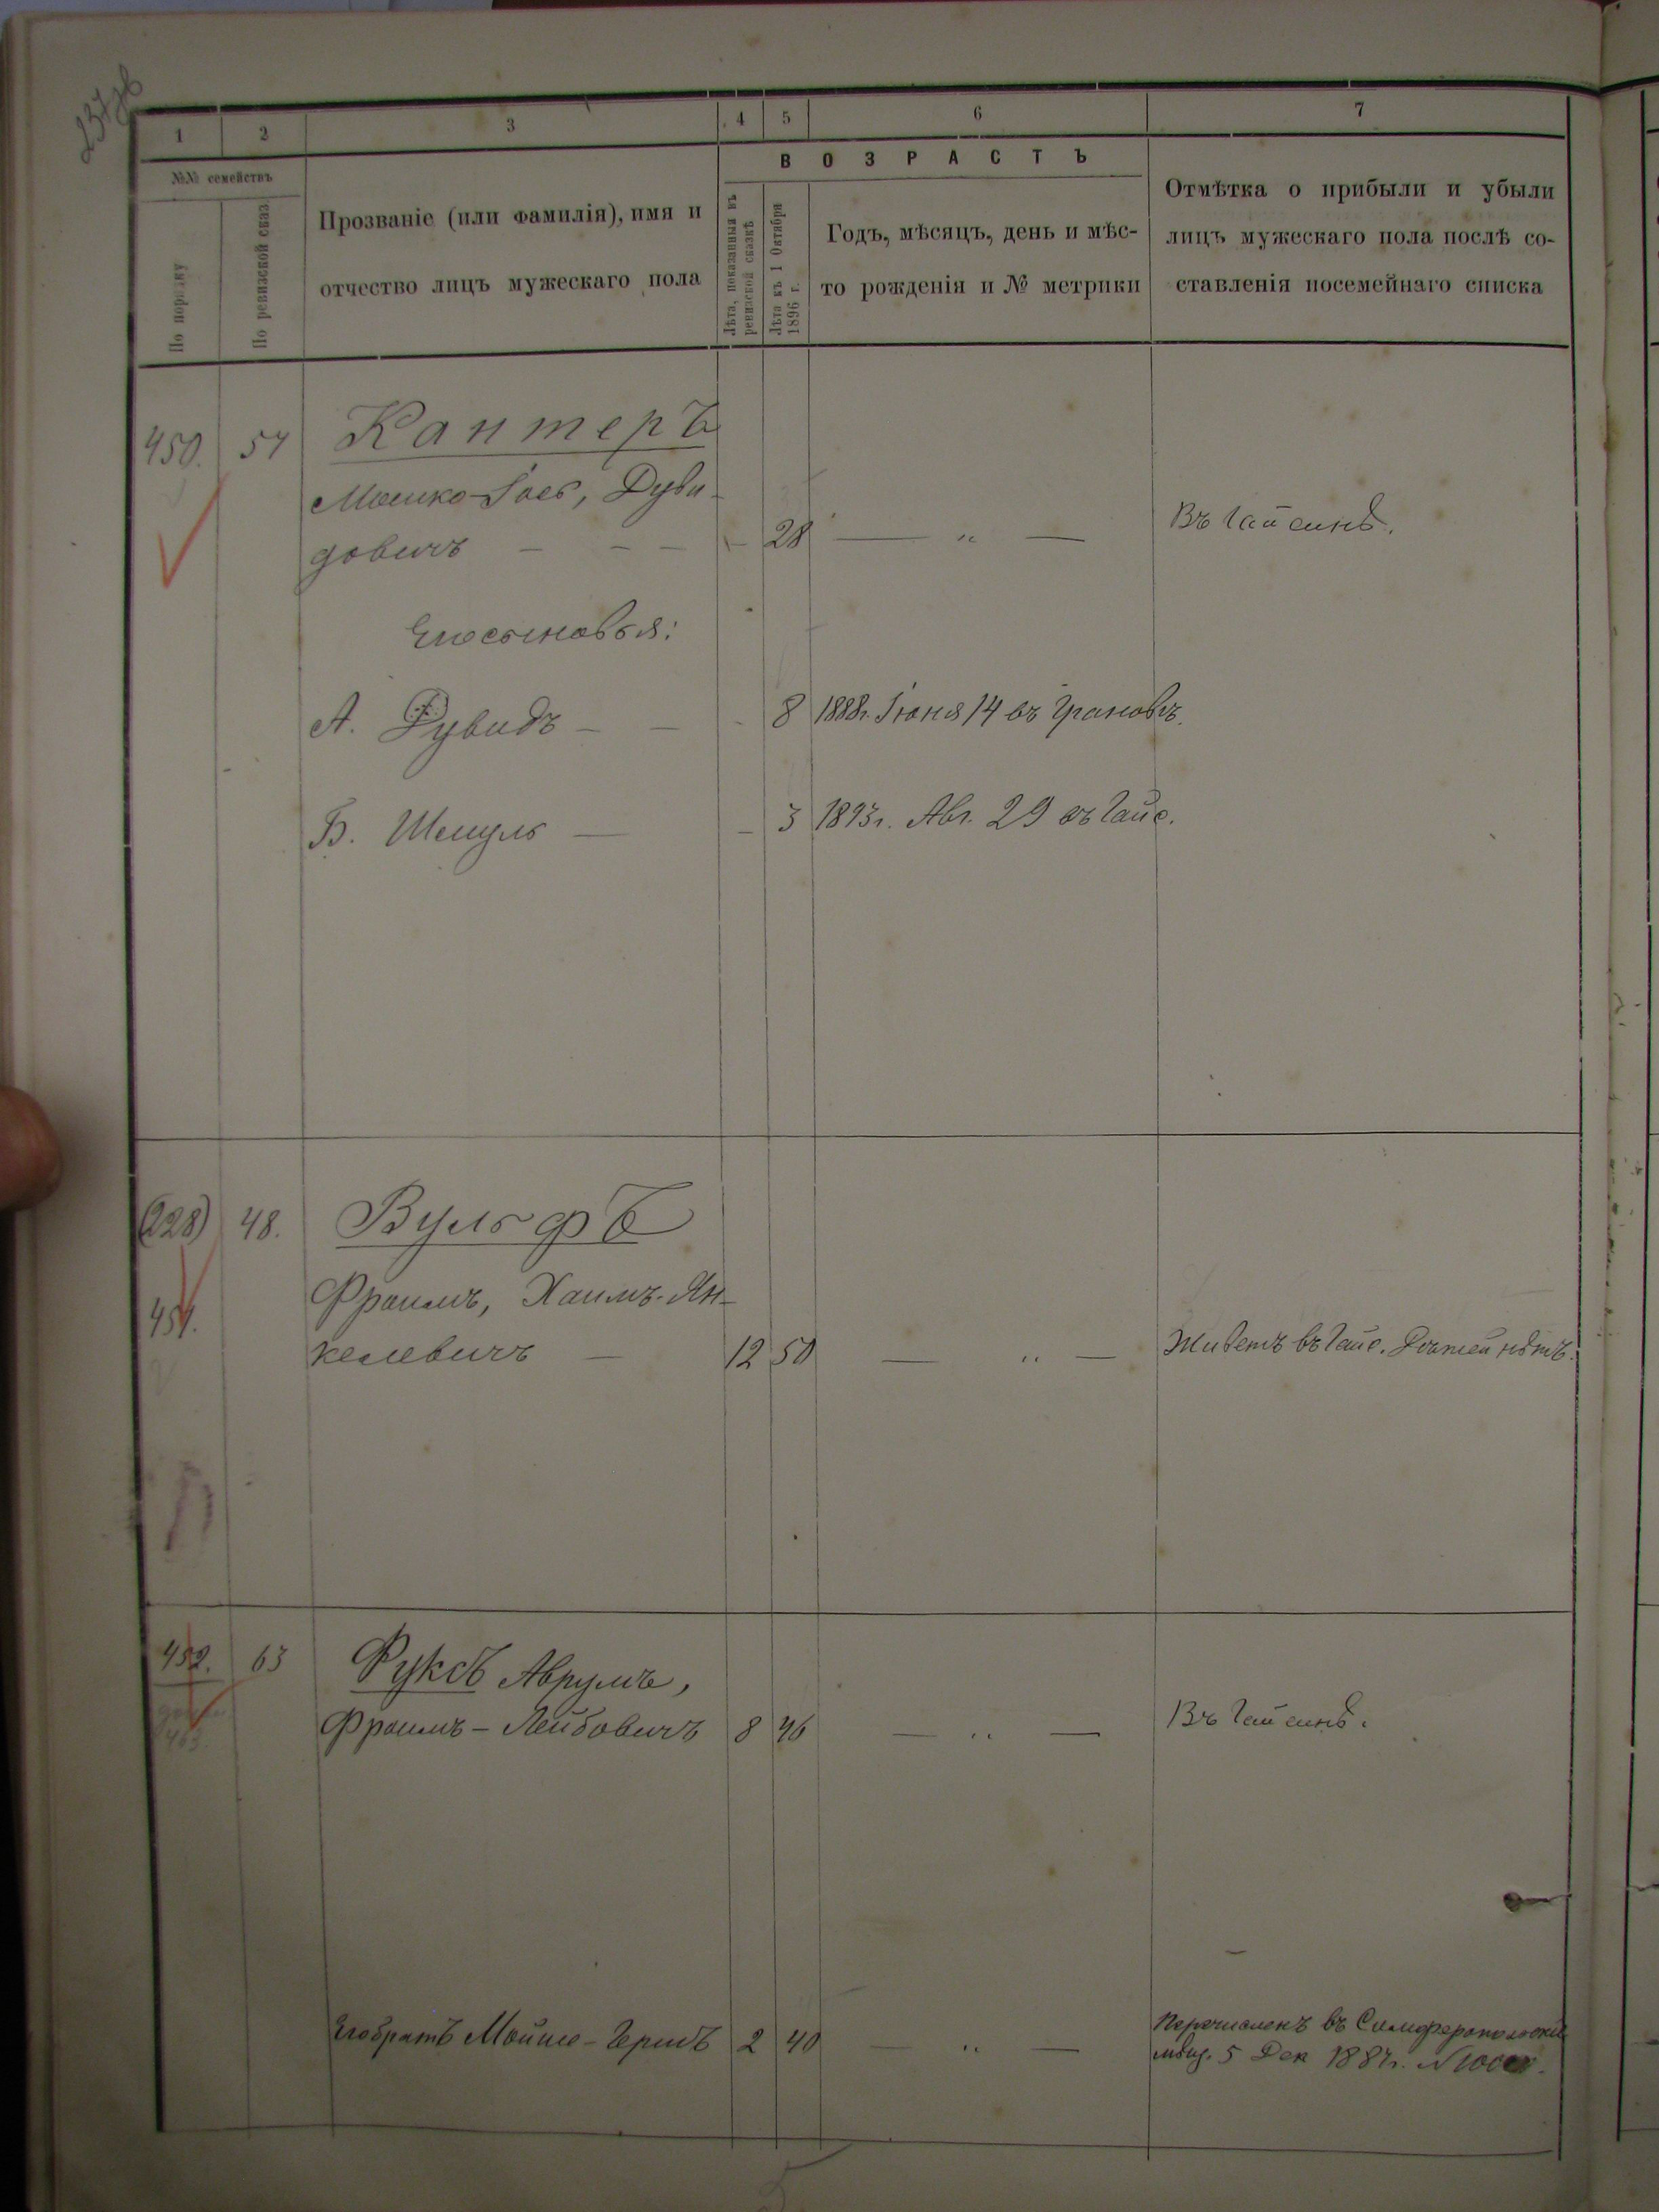 237об
1 2 3 4 5 6 7
№№ семействъ
По порядку
По ревизской сказ
Прозваніе (или Фамилія), имя и
отчество лицъ мужескаго пола
ВОЗРАСТЪ
Лѣта, показанныя въ
ревизской сказкѣ
Лѣта къ 1 Октября
1896 г.
Годъ, мѣсяцъ, день и мѣс-
то рожденія и № метрики
Отмѣтка о прибыли и убыли
лицъ мужескаго пола послѣ со-
ставленія посемейнаго списка
450. 57 Кантеръ
Мошко-Іось, Дуви-
довичъ — — — — 28 — „ — Въ Гайсинѣ.
Его сыновья:
А. Дувидъ — — - 8 1888г. Іюня 14 въ Грановъ.
Б. Шмуль — — 3 1893г. Авг. 29 въ Гайс.
(228) 48. Вульфъ
451.
Фроимъ, Хаимъ-Ян-
келевичъ — 12 50 — „ — Живетъ въ Гайс. Дѣтей нѣтъ.
452. 63 Фуксъ Аврумъ,
Фроимъ-Лейбовичъ 8 46 — „ — Въ Гайсинѣ.
Его братъ Мойше-Гершъ 2 40 — „ — Перечисленъ въ Симферопольскіе
мѣщ. 5 Дек 1887г.